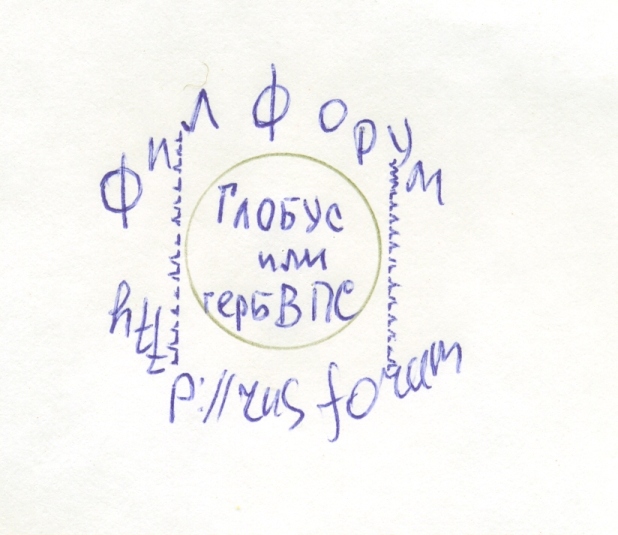 Филфорум
Глобус
или
герб ВПС
http://rusforum